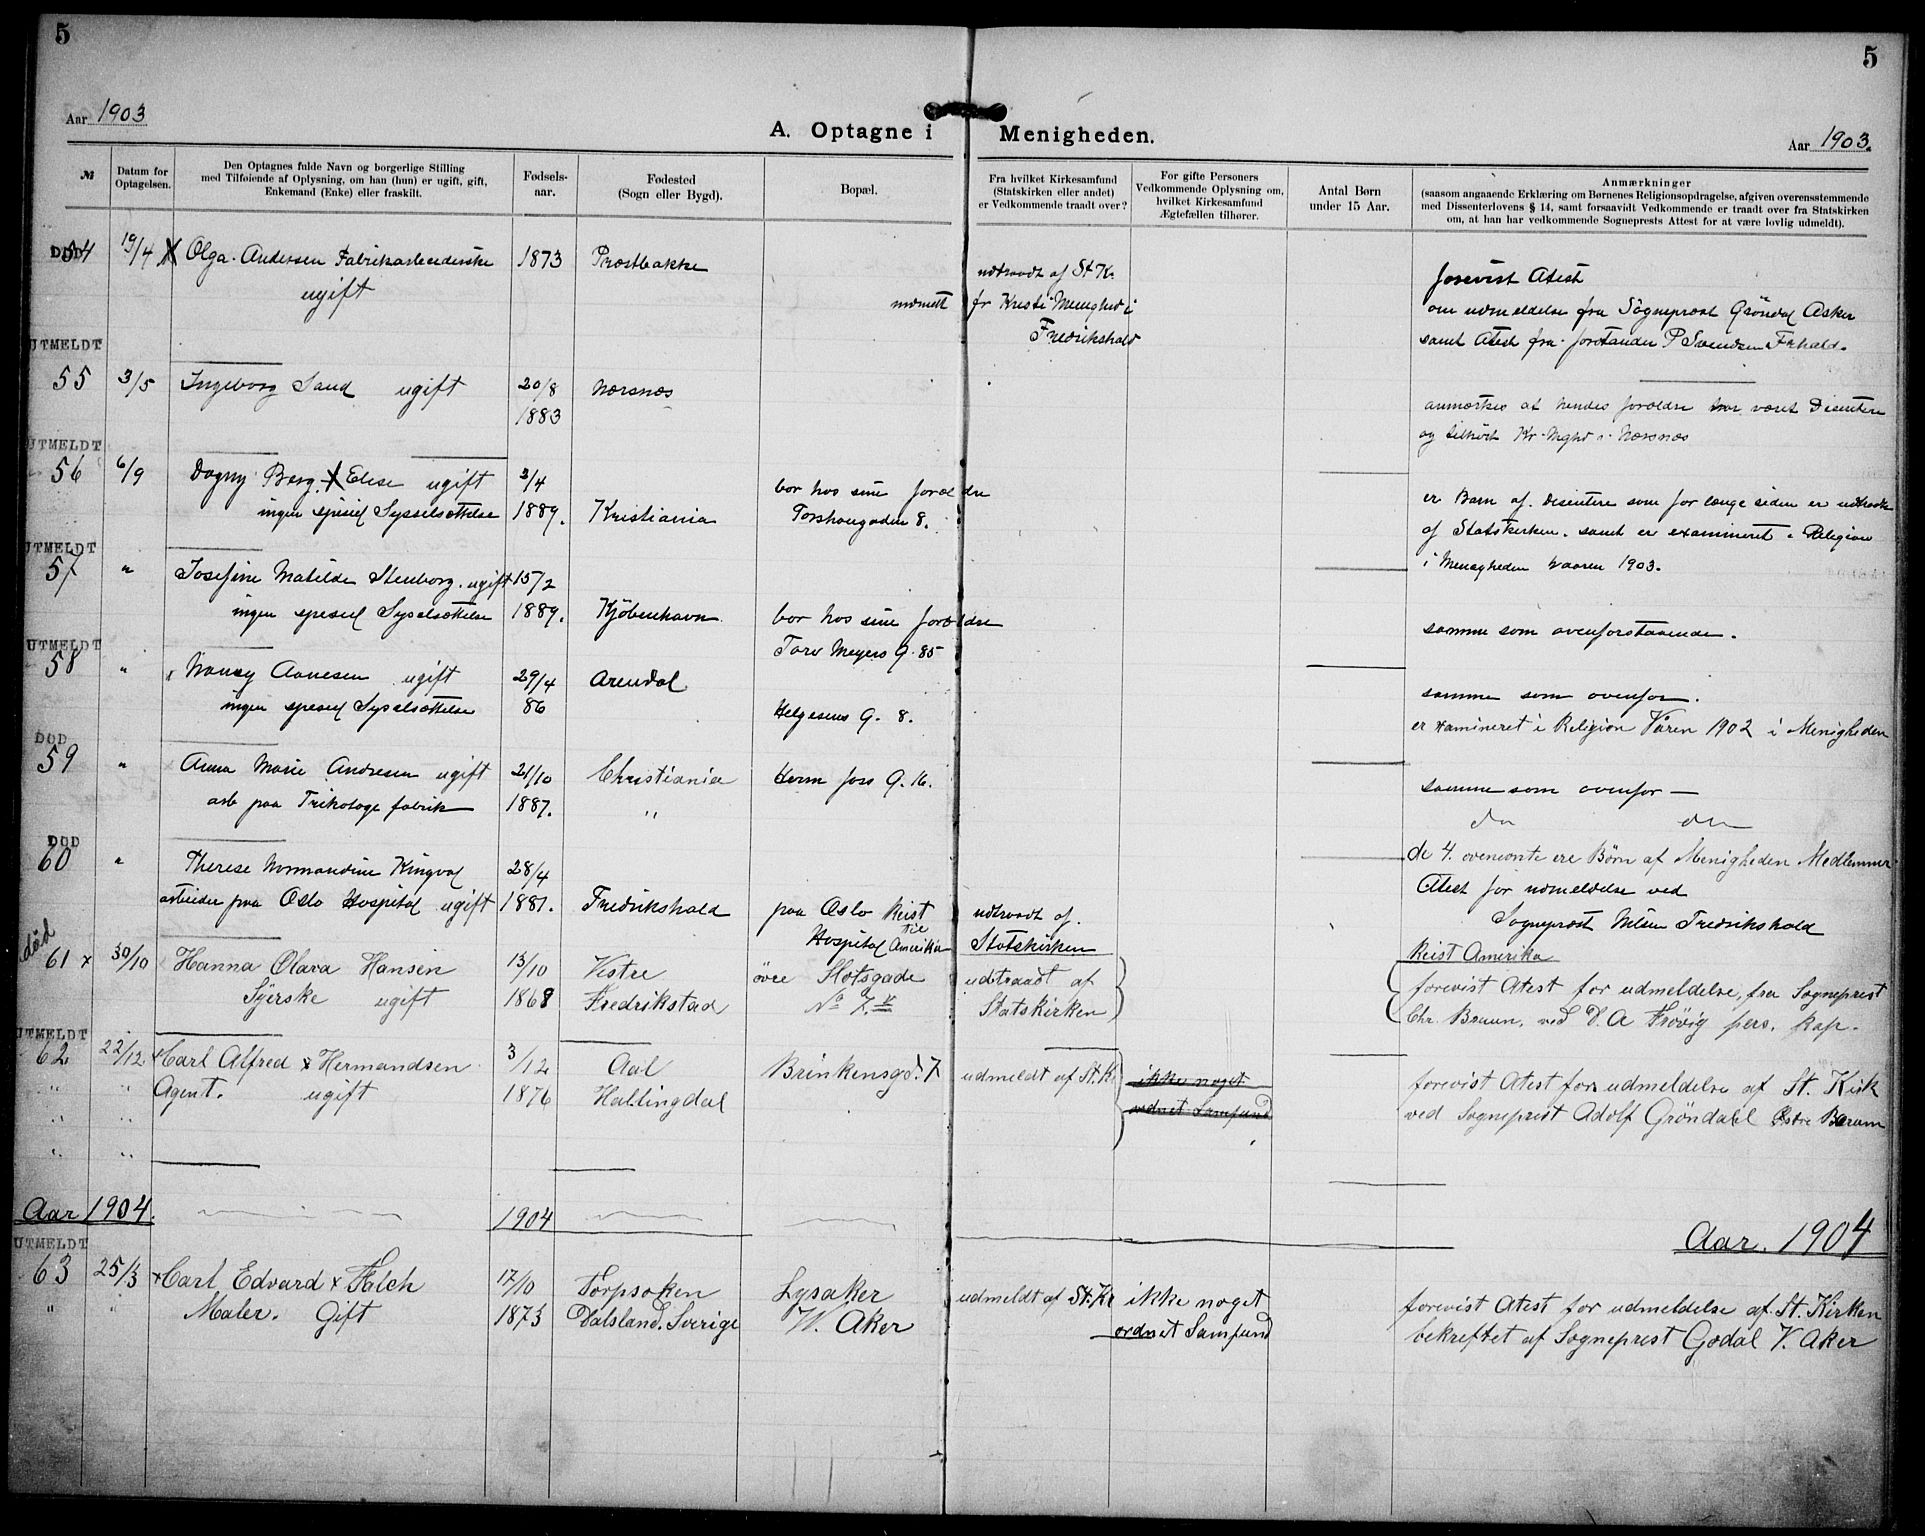 5
5
Aar 1903
A. Optagne i Menigheden.
Aar 1903.
№
Datum for Optagelsen.
Den Optagnes fulde Navn og borgerlige Stilling
med Tilføiende af Oplysning, om han (hun) er ugift, gift,
Enkemand (Enke) eller fraskilt.
Fødsels-
aar.
Fødested
(Sogn eller Bygd).
Bopæl.
Fra hvilket Kirkesamfund
(Statskirken eller andet)
er Vedkommende traadt over?
For gifte Personers
Vedkommende Oplysning om,
hvilket Kirkesamfund
Ægtefællen tilhører.
Antal Børn
under 15 Aar.
Anmærkninger
(saasom angaaende Erklæring om Børnenes Religionsopdragelse, afgiven overensstemmende
med Dissenterlovens § 14, samt forsaavidt Vedkommende er traadt over fra Statskirken
om, at han har vedkommende Sogneprests Attest for at være lovlig udmeldt).
DØD
54 19/4 X Olga Andersen Fabrikarbeiderske 1873 Præstbakke udtraadt af St K. forevist Atest
ugift indmeldt fr Kristi Menighed i om udmeldelse fra Sögneprest Gröndal Asker
Fredrikshald samt Atest fra forstander P Svendsen Frhald.
UTMELDT
55 3/5 Ingeborg Sand ugift 20/8 Nærsnæs
1883 anmærkes at hendes forældre har været Disentere
og tilhört Kr. Mghd i Nærsnæs
UTMELDT
56 6/9 Dagny Berg X Elise ugift 3/4 bor hos sine forældre
ingen spesiel Sysselsættelse 1889. Kristiania Torshaugaden 8. er Barn af Disentere som for længe siden er udtraadt
af Statskirken. samt er examineret i Religion
i Menigheden Vaaren 1903.
UTMELDT
57 " Josefine Matilde Stenborg. ugift 15/2
ingen spesiel Syselsættelse 1889. Kjöbenhavn bor hos sine forældre
Torv Meyers G. 85 samme som ovenforstaaende.
UTMELDT
58 " Nancy Aanesen ugift 29/4 Arendal
ingen spesiel Syselsættelse 86 Helgesens G. 8. samme som ovenfor.
er examineret i Religion Våren 1902 i Menigheden
DØD
59 " Anna Marie Andresen ugift 21/10 Christiania Herm foss G. 16. samme som ovenfor —
arb paa Trikotage fabrik 1887. "
do do
DØD
60 " Therese Normandine Kingvol 28/4 de 4. ovenonte ere Børn af Menigheden Medlemmer
arbeider paa Oslo Hospital ugift 1881. Fredrikshald paa Oslo Reist udtraadt af. Atest for udmeldelse ved
Hospital til Amerika Statskirken Sogneprest Nilsen Fredrikshald
Reist Amerika
död
61 x 30/10 Hanna Olava Hansen 13/10 Vestre övre Slotsgade udtraadt af forevist Atest for udmeldelse, fra Sogneprest
Syerske ugift 1868 Fredrikstad No 7. V Statskirken Chr. Bruun, ved D. A Frövig pers. Kap.
UTMELDT
62 22/12 x Carl Alfred x Hermandsen 3/12 Aal Brinkensgd. 7 udmeldt af St. K. ikke noget forevist Atest for udmeldelse af St. Kirk
" " Agent. ugift 1876 Hallingdal ordnet Samfund ved Sogneprest Adolf Gröndahl Østre Bærum
" "
" "
Aar 1904. 1904 Aar. 1904
UTMELDT
63 25/3 x Carl Edvard x Falch 17/10 Torpsoken Lysaker udmeldt af St. Kr ikke noget forevist Atest for udmeldelse af St. Kirken
" " Maler. Gift 1873 Dalsland. Sverige V. Aker ordnet Samfund bekreftet af Sogneprest Godal V. Aker